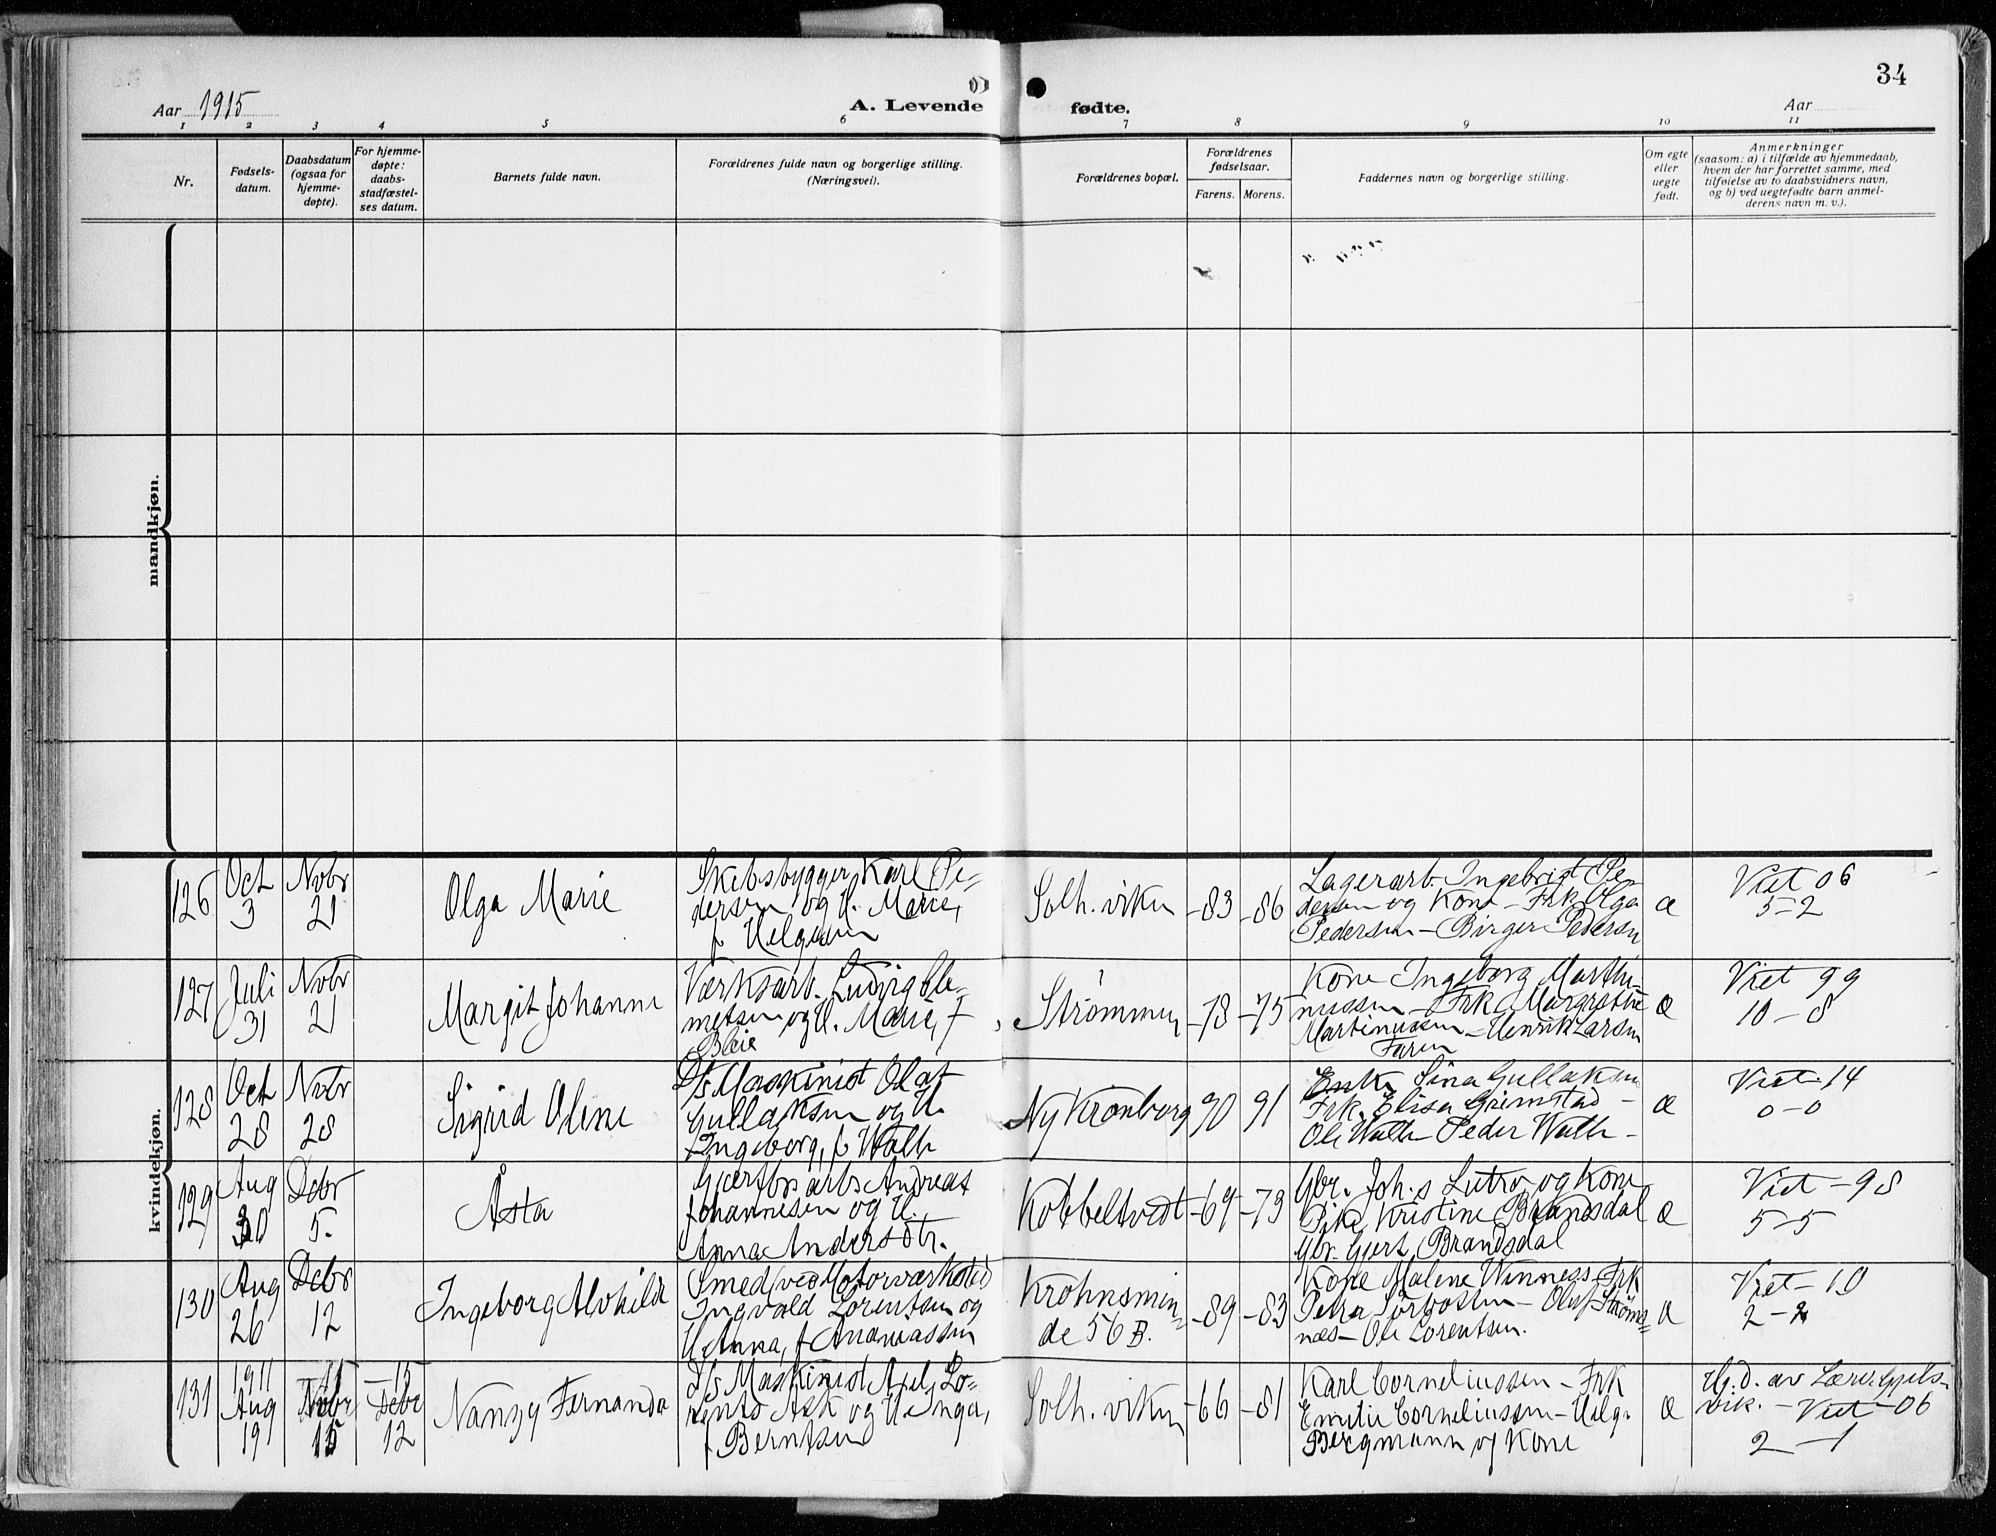 34
Aar 1915
A. Levende fødte.
Aar
1 2 3 4 5 6 7 8 9 10 11
Nr.
Fødsels-
datum.
Daabsdatum
(ogsaa for
hjemme-
døpte).
For hjemme-
døpte:
daabs-
stadfæstel-
ses datum.
Barnets fulde navn.
Forældrenes fulde navn og borgerlige stilling.
(Næringsvei).
Forældrenes bopæl.
Forældrenes
fødselsaar.
Farens. Morens.
Faddernes navn og borgerlige stilling.
Om egte
eller
uegte
født.
Anmerkninger
(saasom: a) i tilfælde av hjemmedaab,
hvem der har forrettet samme, med
tilføielse av to daabsvidners navn,
og b) ved uegtefødte barn anmel-
derens navn m. v.).
mandkjøn.
kvindekjøn.
126
Oct
3
Nvbr
21
Olga Marie
Skibsbygger Karl Pe-
dersen og H. Marie,
f
Solh. viken
-83 -86
Lagerarb. Ingebrigt Pe-
dersen og Kone - Frk Olga
Pedersen - Birger Pedersen
æ
Viet 06
5-2
127
Juli
31
Nvbr
21
Margit Johanne
Værksarb. Ludvig Cle-
metsen og H. Marie, f
Bleie
Strømmen
-78 -75
Kone Ingeborg Marthi-
nussen - Frk Margrethe
Martinussen - Henrik Larsen
Faren
æ
Viet 99
10-8
128
Oct
28
Nvbr
28
Sigrid Oline
D/s Maskinist Olaf
Gullaksen og H.
Ingeborg, f Wath
Ny Kronborg
90 91
Enke Sina Gullaksen
Frk. Elisa Grimstad -
Ole Wath - Peder Wath -
æ
Viet 14
0-0
129
Aug
30
Debr
5.
Åsta
arb Andreas
Johannesen og H.
Anna Andersdtr.
Kobbeltvedt
-69 -73
Gbr. Joh.s Lutro og Kone
Pike Kristine Brandsdal
Gbr. Gjert Brandsdal
æ
Viet - 98
5-5
130
Aug
26
Debr
12
Ingeborg Alvhilde
Smed ved Motorværksted
Ingvald Lorentsen og
H Anna, f Andreassen
Krohnsmin-
de 56 B.
-89 -83
Kone Malene Winness - Frk
Petra - Olaf Strøms-
næs - Ole Lorentsen.
æ
Viet - 10
2-2
131
1911
Aug
19
Nvbr
15
-15
Debr
12
Nanzy Fernanda
D/s Maskinist Axel Lo-
rents Ask og H Inga,
f Berntsen
Solh. viken
-66 -81
Karl Corneliussen - Frk
Emilie Corneliussen - Helge
Bergmann og Kone
æ
Hj.d. av Lærer Gjels-
vik. - Viet - 06
2-1